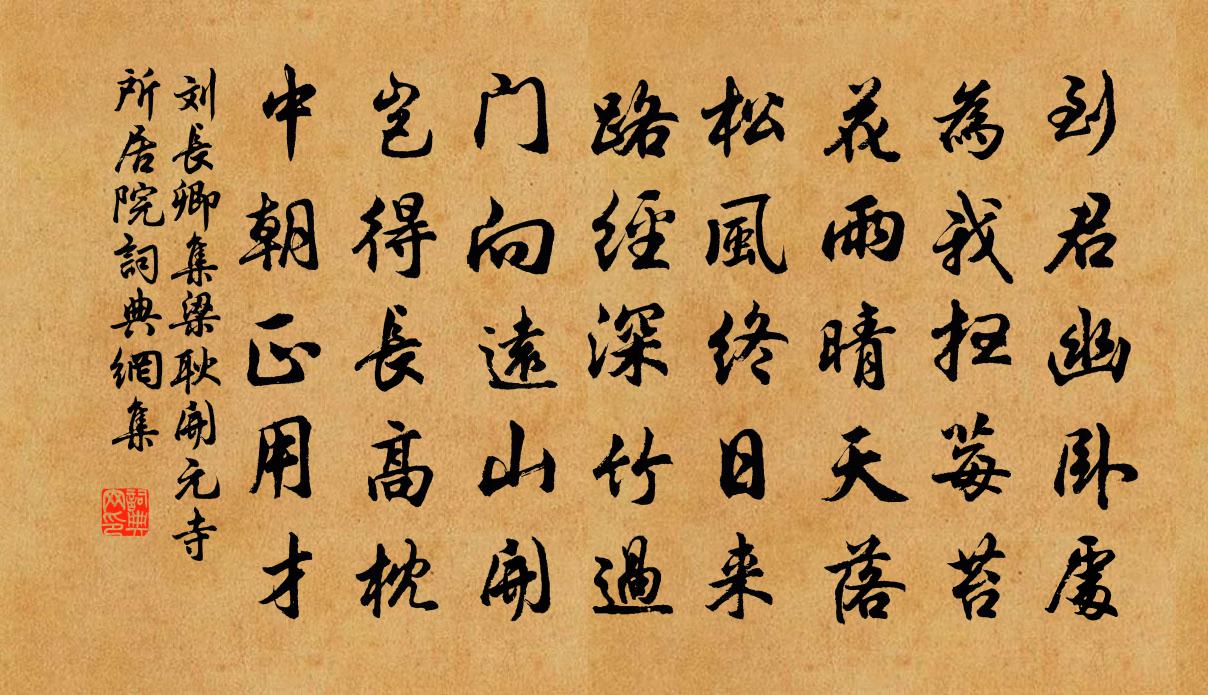 到君幽卧處
為我掃莓苔
花雨晴天落
松風终日来
路經深竹過
门向遠山開
豈得長高枕
中朝正用才
刘長卿集梁耿開元寺
所居院詞典網集
詞典網印